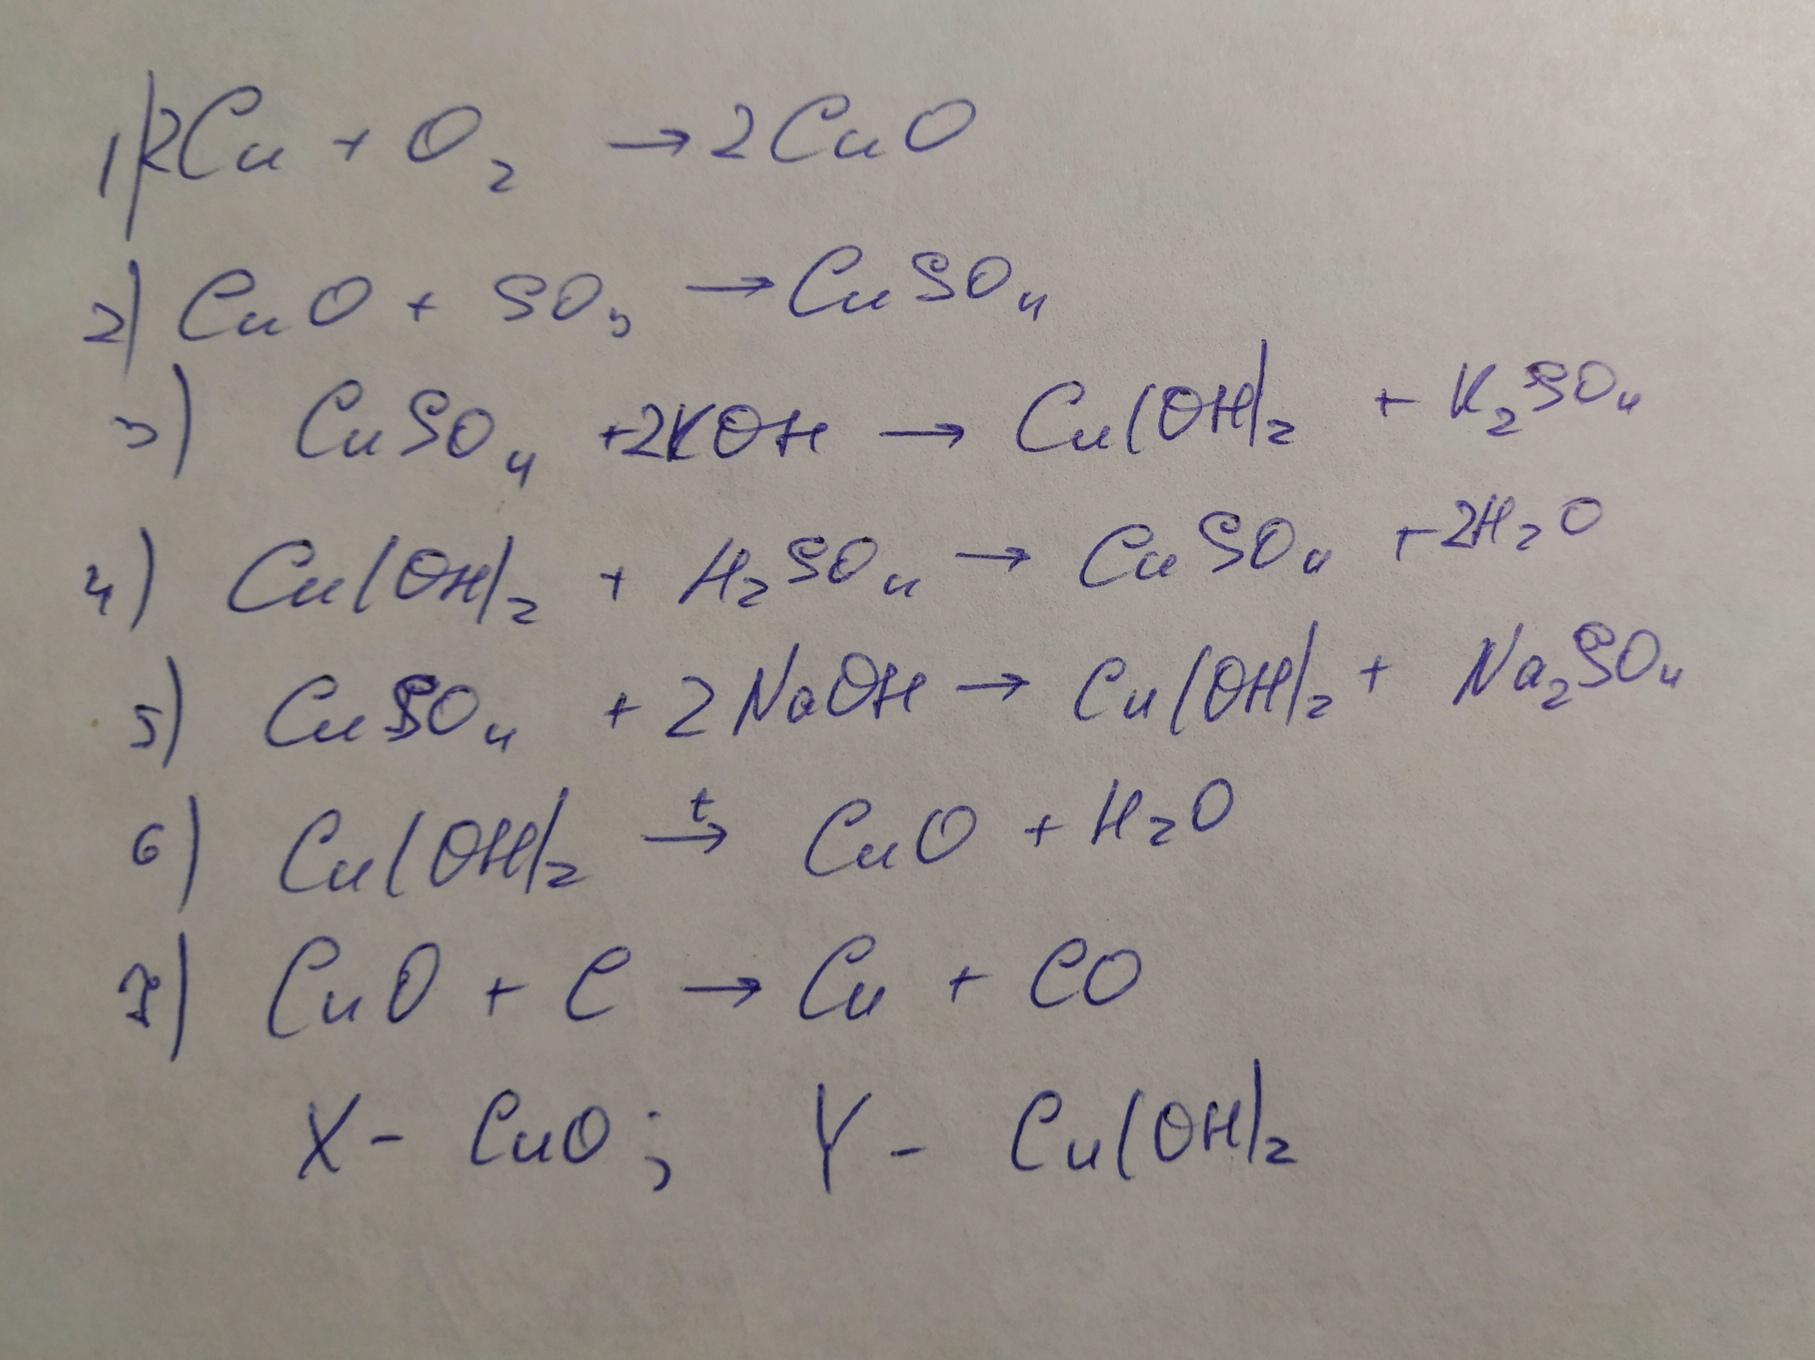 1) 2Cu + O₂ → 2CuO
2) CuO + SO₃ → CuSO₄
3) CuSO₄ + 2KOH → Cu(OH)₂ + K₂SO₄
4) Cu(OH)₂ + H₂SO₄ → CuSO₄ + 2H₂O
5) CuSO₄ + 2NaOH → Cu(OH)₂ + Na₂SO₄
6) Cu(OH)₂ →ᵗ CuO + H₂O
7) CuO + C → Cu + CO
X - CuO; Y - Cu(OH)₂